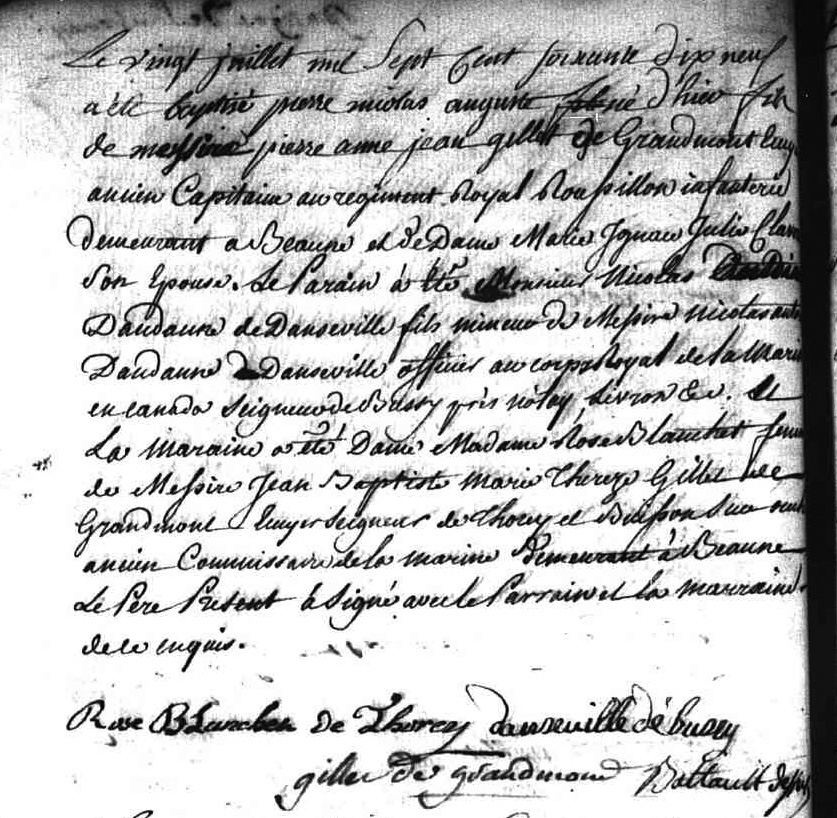 Le vingt juillet mil Sept Cent soixante dix neuf
a été baptisé pierre nicolas auguste né d'hier fils
de messire pierre anne jean gillet de Grandmont Ecuy
ancien Capitaine au regiment Royal Roussillon infanterie
demeurant a Beaune et de Dame Marie Ignace Julie
Son Epouse. Le Parain à été Monsieur Nicolas
Daudanne de Danseville fils mineur de Messire nicolas
Daudanne de Danseville officier au corps Royal de la Marine
en canada Seigneur de Bussy près nolay, Sivron &c. Et
La maraine a été Dame Madame Rose Blanchet femme
de Messire Jean Baptiste Marie Thereze Gillet de
Grandmont Ecuyer Seigneur de Thorey et Buisson
ancien Commissaire de la marine demeurant à Beaune
Le Père Present à Signé avec le Parrain et la marraine
de ce enquis.
Rose Blanchet de Thorey danseville dé bussy
gillet de grandmond Battault